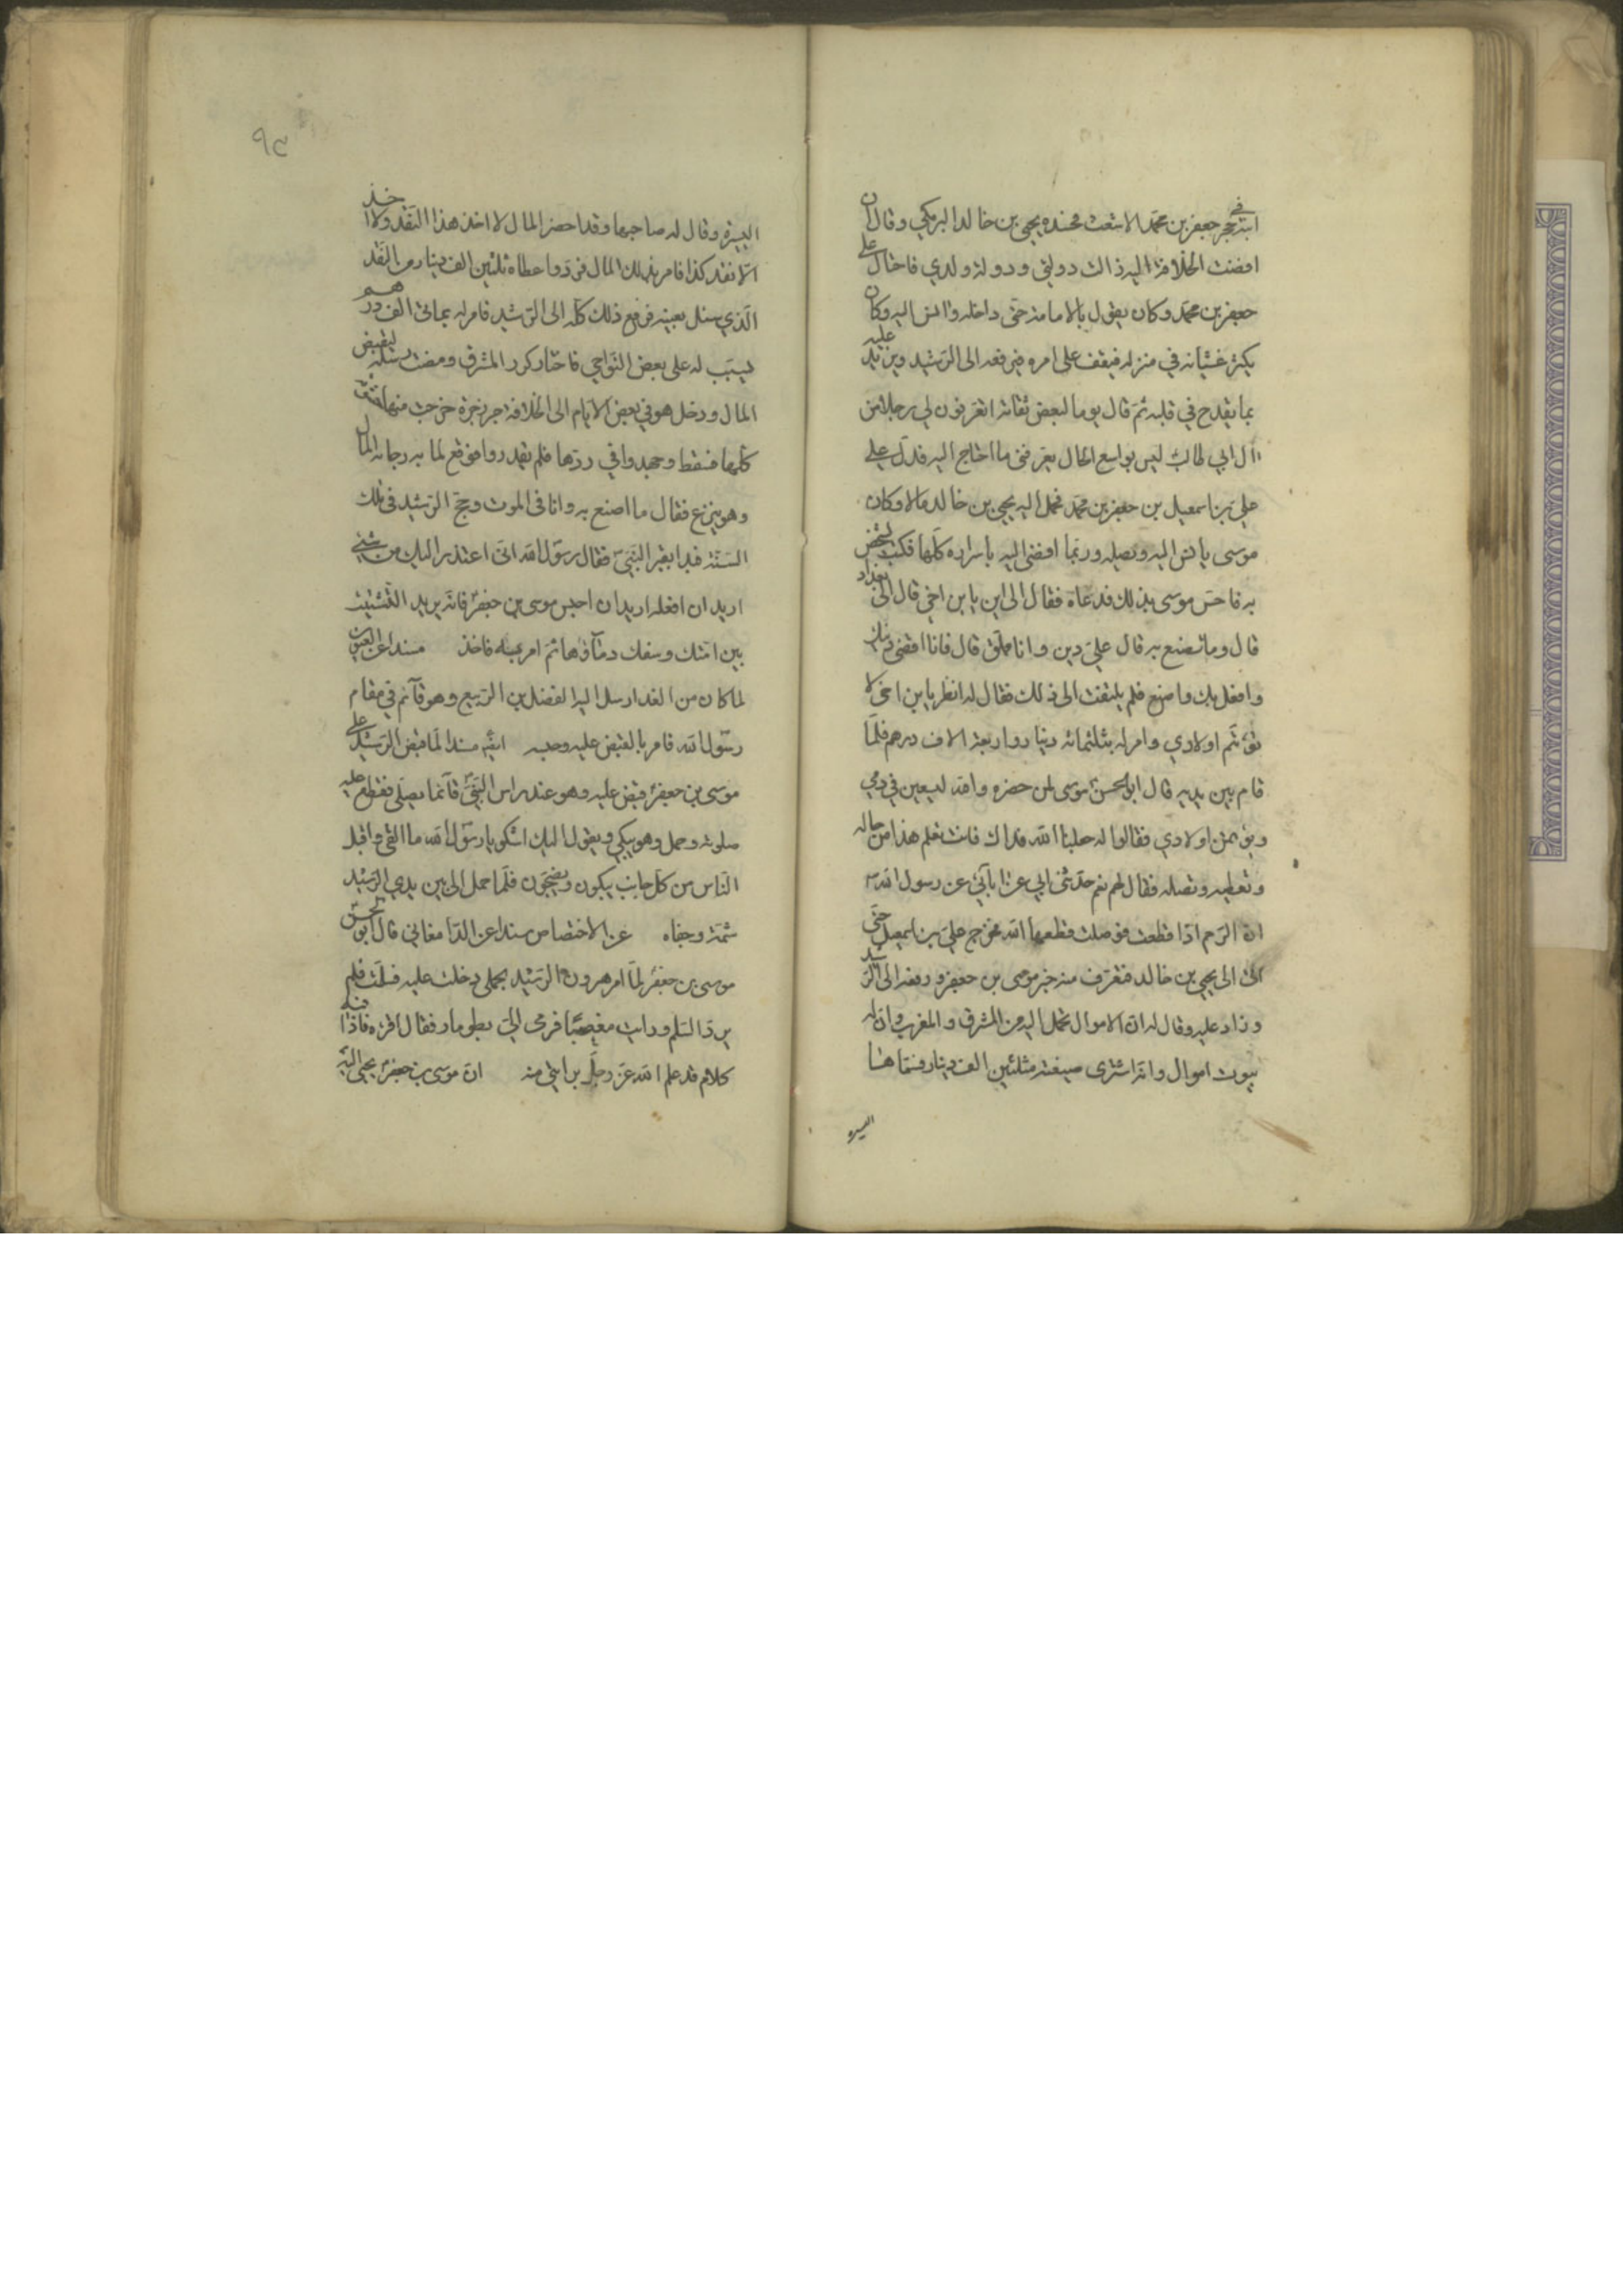 ابنه في حجر جعفر بن محمد الاشعث فحسده يحيى بن خالد البرمكي وقال ان
افضت الخلافة اليه زالت دولتي ودولة ولدي فاحتال على
جعفر بن محمد وكان يقول بالامامة حتى داخله وانس اليه وكان
يكثر غشيانه في منزله فيقف على امره فيرفعه الى الرشيد ويزيد عليه
بما يقدح في قلبه ثم قال يوما لبعض ثقاته اتعرفون لي رجلا من
آل ابي طالب ليس بواسع الحال يعرفني ما احتاج اليه فدل على
علي بن اسمعيل بن جعفر بن محمد فحمل اليه يحيى بن خالد مالا وكان
موسى يانس اليه ويصله وربما افضى اليه باسراره كلها فكتب ليشخص
به فاحس موسى بذلك فدعاه فقال الى اين يا بن اخي قال الى بغداد
قال وما تصنع به قال علي دين وانا مملق قال فانا اقضي دينك
وافعل بك واصنع فلم يلتفت الى ذلك فقال له انظر يا بن اخي لا
تؤتم اولادي وامر له بثلثمائة دينار واربعة الاف درهم فلما
قام بين يديه قال ابو الحسن موسى لمن حضره والله ليسعين في دمي
ويؤتمن اولادي فقالوا له جعلنا الله فداك فانت تعلم هذا من حاله
وتعطيه وتصله فقال لهم نعم حدثني ابي عن ابآئي عن رسول الله ص
ان الرحم اذا قطعت فوصلت قطعها الله فخرج علي بن اسمعيل حتى
اتى الى يحيى بن خالد فتعرف منه خبر موسى بن جعفر ورفعه الى الرشيد
وزاد عليه وقال له ان الاموال تحمل اليه من المشرق والمغرب وان له
بيوت اموال وانه اشترى ضيعة بثلثين الف دينار فسماها
اليسيرة
٩٣
اليسيرة وقال له صاحبها وقد احضر المال لا اخذ هذا النقد ولا اخذ
الا نقد كذا فامر بذلك المال فرد واعطاه ثلثين الف دينار من النقد
الذي سئل بعينه فرفع ذلك كله الى الرشيد فامر له بمائتي الف درهم
يسبب له على بعض النواحي فاختار كور المشرق ومضت رسله ليقبض
المال ودخل هو في بعض الايام الى الخلاء فزحر زحرة خرجت منها حشوته
كلها فسقط وجهدوا في ردها فلم يقدروا فوقع لما به وجائه المال
وهو ينزع فقال ما اصنع به وانا في الموت وحج الرشيد في تلك
السنة فبدا بقبر النبي ص فقال رسول الله اني اعتذر اليك من شيئي
اريد ان افعله اريد ان احبس موسى بن جعفر فانه يريد التشتيت
بين امتك وسفك دمآئها ثم امر به فاخذ مسندا عن العيون
لما كان من الغد ارسل اليه الفضل بن الربيع وهو قآئم في مقام
رسول الله فامر بالقبض عليه وحبسه ايضا مسندا لما قبض الرشيد على
موسى بن جعفر قبض عليه وهو عند راس النبي ص قآئما يصلي فقطع عليه
صلوته وحمل وهو يبكي ويقول اليك اشكو يا رسول الله ما القى واقبل
الناس من كل جانب يبكون ويضجون فلما حمل الى بين يدي الرشيد
شتمه وجفاه عن الاختصاص مسندا عن الدامغاني قال ابو الحسن
موسى بن جعفر لما امر هرون الرشيد بحملي دخلت عليه فسلمت فلم
يرد السلم ورايته مغضبا فرمى الي بطومار فقال اقره فاذا فيه
كلام قد علم الله عز وجل برائتي منه ان موسى بن جعفر يجبى اليه